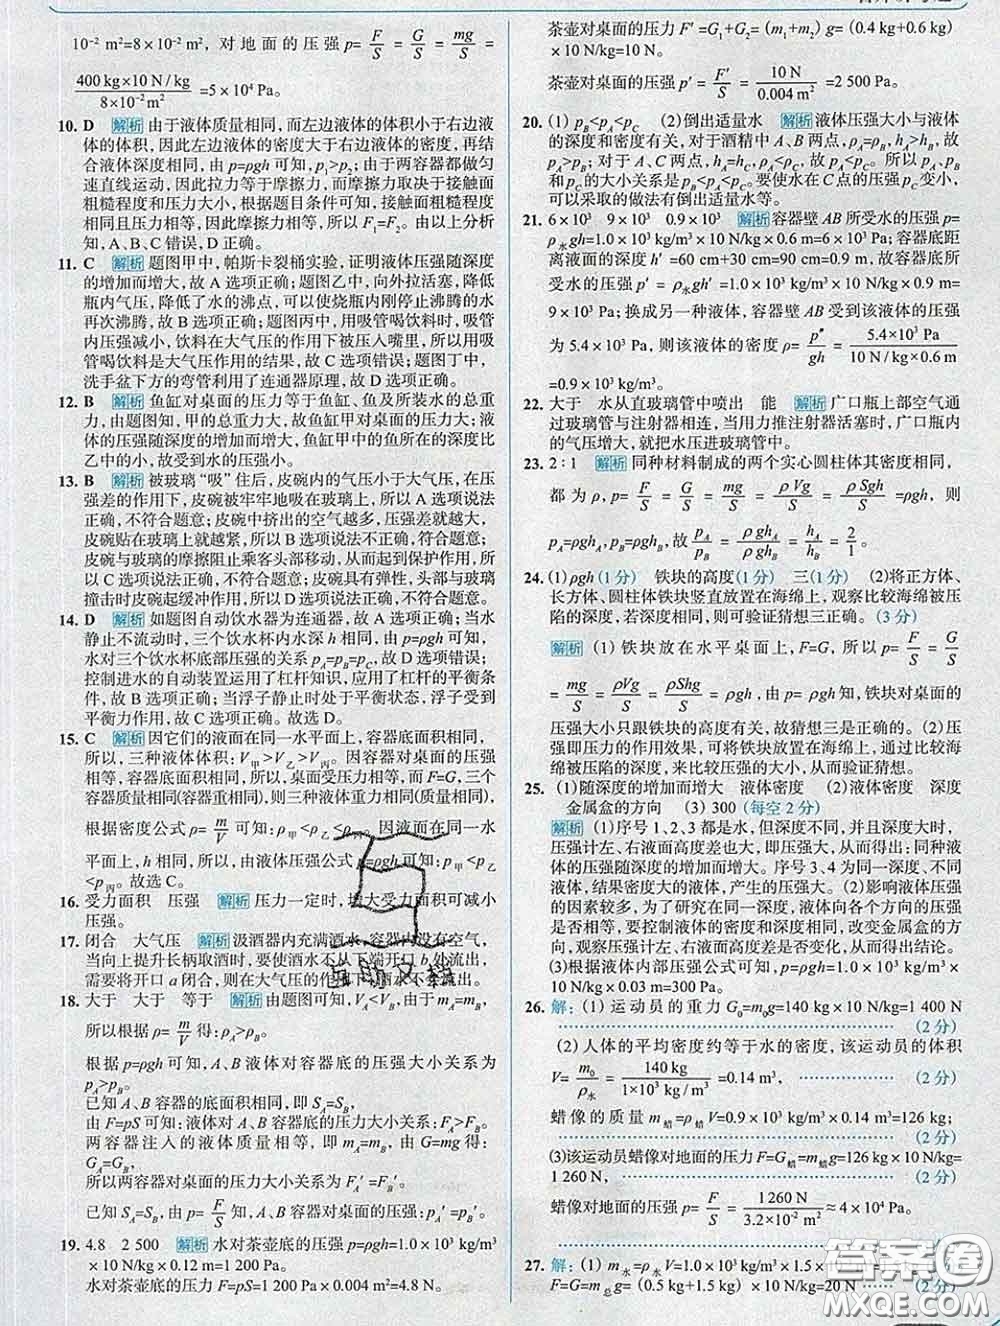 10⁻² m²=8×10⁻² m²，对地面的压强 p=F/S=G/S=mg/S=
400 kg×10 N/kg/8×10⁻² m²=5×10⁴ Pa。
10. D 解析 由于液体质量相同，而左边液体的体积小于右边液
体的体积，因此左边液体的密度大于右边液体的密度，再结
合液体深度相同，由 p=ρgh 可知，p₁>p₂；由于两容器都做匀
速直线运动，因此拉力等于摩擦力，而摩擦力取决于接触面
粗糙程度和压力大小，根据题目条件可知，接触面粗糙程度
相同且压力相等，因此摩擦力相等，所以 F₁=F₂。由以上分析
知，A、B、C 错误，D 正确。
11. C 解析 题图甲中，帕斯卡裂桶实验，证明液体压强随深度
的增加而增大，故 A 选项正确；题图乙中，向外拉活塞，降低
瓶内气压，降低了水的沸点，可以使烧瓶内刚停止沸腾的水
再次沸腾，故 B 选项正确；题图丙中，用吸管喝饮料时，吸管
内压强减小，饮料在大气压的作用下被压入嘴里，所以用吸
管喝饮料是大气压作用的结果，故 C 选项错误；题图丁中，
洗手盆下方的弯管利用了连通器原理，故 D 选项正确。
12. B 解析 鱼缸对桌面的压力等于鱼缸、鱼及所装水的总重
力，由题图知，甲的总重力大，故鱼缸甲对桌面的压力大；液
体的压强随深度的增加而增大，鱼缸甲中的鱼所在的深度比
乙中的小，故受到水的压强小。
13. B 解析 被玻璃“吸”住后，皮碗内的气压小于大气压，在压
强差的作用下，皮碗被牢牢地吸在玻璃上，所以 A 选项说法
正确，不符合题意；皮碗中挤出的空气越多，压强差就越大，
皮碗贴在玻璃上就越紧，所以 B 选项说法不正确，符合题意；
皮碗与玻璃的摩擦阻止乘客头部移动，从而起到保护作用，所
以 C 选项说法正确，不符合题意；皮碗具有弹性，头部与玻璃
撞击时皮碗起缓冲作用，所以 D 选项说法正确，不符合题意。
14. D 解析 如题图自动饮水器为连通器，故 A 选项正确；当水
静止不流动时，三个饮水杯内水深 h 相同，由 p=ρgh 可知，
水对三个饮水杯底部压强的关系 p_A=p_B=p_C，故 D 选项错误；
控制进水的自动装置运用了杠杆知识，应用了杠杆的平衡条
件，故 B 选项正确；当浮子静止时处于平衡状态，浮子受到
平衡力作用，故 C 选项正确。故选 D。
15. C 解析 因它们的液面在同一水平面上，容器底面积相同，
所以，三种液体体积：V甲>V乙>V丙。因容器对桌面的压强
相等，容器底面积相同，所以：桌面受压力相等，而 F=G，三个
容器质量相同(容器重相同)，则三种液体重力相同(质量相同)，
根据密度公式 ρ=m/V 可知：ρ甲<ρ乙<ρ丙。因液面在同一水
平面上，h 相同，所以，由液体压强公式 p=ρgh 可知：p甲<p乙
<p丙。故选 C。
16. 受力面积 压强 解析 压力一定时，增大受力面积可减小
压强。
17. 闭合 大气压 解析 汲酒器内充满酒水，容器内没有空气，
当向上提升长柄取酒时，要使酒水不从下端开口 b 外流出，
需要将开口 a 闭合，则在大气压的作用下酒水不会流出。
18. 大于 大于 等于 解析 由题图可知，V_A<V_B，由于 m_A=m_B，
所以根据 ρ=m/V 得：ρ_A>ρ_B。
根据 p=ρgh 可知，A、B 液体对容器底的压强大小关系为
p_A>p_B。
已知 A、B 容器的底面积相同，即 S_A=S_B，
由 F=pS 可知：液体对 A、B 容器底的压力大小关系：F_A>F_B。
两容器注入的液体质量相等，即 m_A=m_B，由 G=mg 得：
G_A=G_B，
所以两容器对桌面的压力大小关系为 F_A′=F_B′。
已知 S_A=S_B，由 p=F/S 知，A、B 容器对桌面的压强：p_A′=p_B′。
19. 4.8 2 500 解析 水对茶壶底的压强 p=ρgh=1.0×10³ kg/m³
×10 N/kg×0.12 m=1 200 Pa。
水对茶壶底的压力 F=pS=1 200 Pa×0.004 m²=4.8 N。
茶壶对桌面的压力 F′=G₁+G₂=(m₁+m₂)g=(0.4 kg+0.6 kg)
×10 N/kg=10 N。
茶壶对桌面的压强 p′=F′/S=10 N/0.004 m²=2 500 Pa。
20. (1) p_B<p_A<p_C (2)倒出适量水 解析 液体压强大小与液体
的深度和密度有关，对于酒精中 A、B 两点，ρ_A=ρ_B，h_A>h_B，故
p_A>p_B；对于 A、C 两点，h_A=h_C，ρ_A<ρ_C，故 p_A<p_C。所以 p_A、p_B
和 p_C 的大小关系是 p_B<p_A<p_C。要使水在 C 点的压强 p_C 变小，
可以采取的做法有倒出适量水等。
21. 6×10³ 9×10³ 0.9×10³ 解析 容器壁 AB 所受水的压强 p=
ρ水gh=1.0×10³ kg/m³×10 N/kg×0.6 m=6×10³ Pa；容器底距
离液面的深度 h′=60 cm+30 cm=90 cm=0.9 m，故容器底
所受水的压强 p′=ρ水gh′=1.0×10³ kg/m³×10 N/kg×0.9 m=
9×10³ Pa；换成另一种液体，容器壁 AB 受到该液体的压强
为 5.4×10³ Pa，则该液体的密度 ρ=p″/gh=5.4×10³ Pa/10 N/kg×0.6 m
=0.9×10³ kg/m³。
22. 大于 水从直玻璃管中喷出 能 解析 广口瓶上部空气通
过玻璃管与注射器相连，当用力推注射器活塞时，广口瓶内
的气压增大，就把水压进玻璃管中。
23. 2∶1 解析 同种材料制成的两个实心圆柱体其密度相同，
都为 ρ，p=F/S=G/S=mg/S=ρVg/S=ρSgh/S=ρgh，则
p_A=ρgh_A，p_B=ρgh_B，故p_A/p_B=ρgh_A/ρgh_B=h_A/h_B=2/1。
24. (1)ρgh(1 分) 铁块的高度(1 分) 三(1 分) (2)将正方体、
长方体、圆柱体铁块竖直放置在海绵上，观察比较海绵被压
陷的深度，若深度相同，则可验证猜想三正确。(3 分)
解析 (1)铁块放在水平桌面上，F=G，所以 p=F/S=G/S
=mg/S=ρVg/S=ρShg/S=ρgh，由 p=ρgh 知，铁块对桌面的
压强大小只跟铁块的高度有关，故猜想三是正确的。(2)压
强即压力的作用效果，可将铁块放置在海绵上，通过比较海
绵被压陷的深度，来比较压强的大小，从而验证猜想。
25. (1)随深度的增加而增大 液体密度 (2)液体密度 深度
金属盒的方向 (3) 300 (每空 2 分)
解析 (1)序号 1、2、3 都是水，但深度不同，并且深度大时，
压强计左、右液面高度差也大，即压强大，从而得出：同种液
体的压强随深度的增加而增大。序号 3、4 为同一深度、不同
液体，结果密度大的液体，产生的压强大。(2)影响液体压强
的因素较多，为了研究在同一深度，液体向各个方向的压强
是否相等，要控制液体的密度和深度相同，改变金属盒的方
向，观察压强计左、右液面高度差是否变化，从而得出结论。
(3)根据液体内部压强公式可知，p=ρgh=1.0×10³ kg/m³×10 N/kg×
0.03 m=300 Pa。
26. 解：(1)运动员的重力 G₀=m₀g=140 kg×10 N/kg=1 400 N
(2 分)
(2)人体的平均密度约等于水的密度，该运动员的体积
V=m₀/ρ水=140 kg/1×10³ kg/m³=0.14 m³， (2 分)
蜡像的质量 m蜡=ρ蜡V=0.9×10³ kg/m³×0.14 m³=126 kg；
(2 分)
(3)该运动员蜡像对地面的压力 F=G蜡=m蜡g=126 kg×10 N/kg=
1 260 N， (2 分)
蜡像对地面的压强 p=F/S=1 260 N/3.2×10⁻² m²≈4×10⁴ Pa。
27. 解：(1) m水=ρ水V=1.0×10³ kg/m³×1.5×10
F=G=m总g=(0.5 kg+1.5 kg)×10 N/kg=20 N (2 分)
答案圈
MXQE.COM